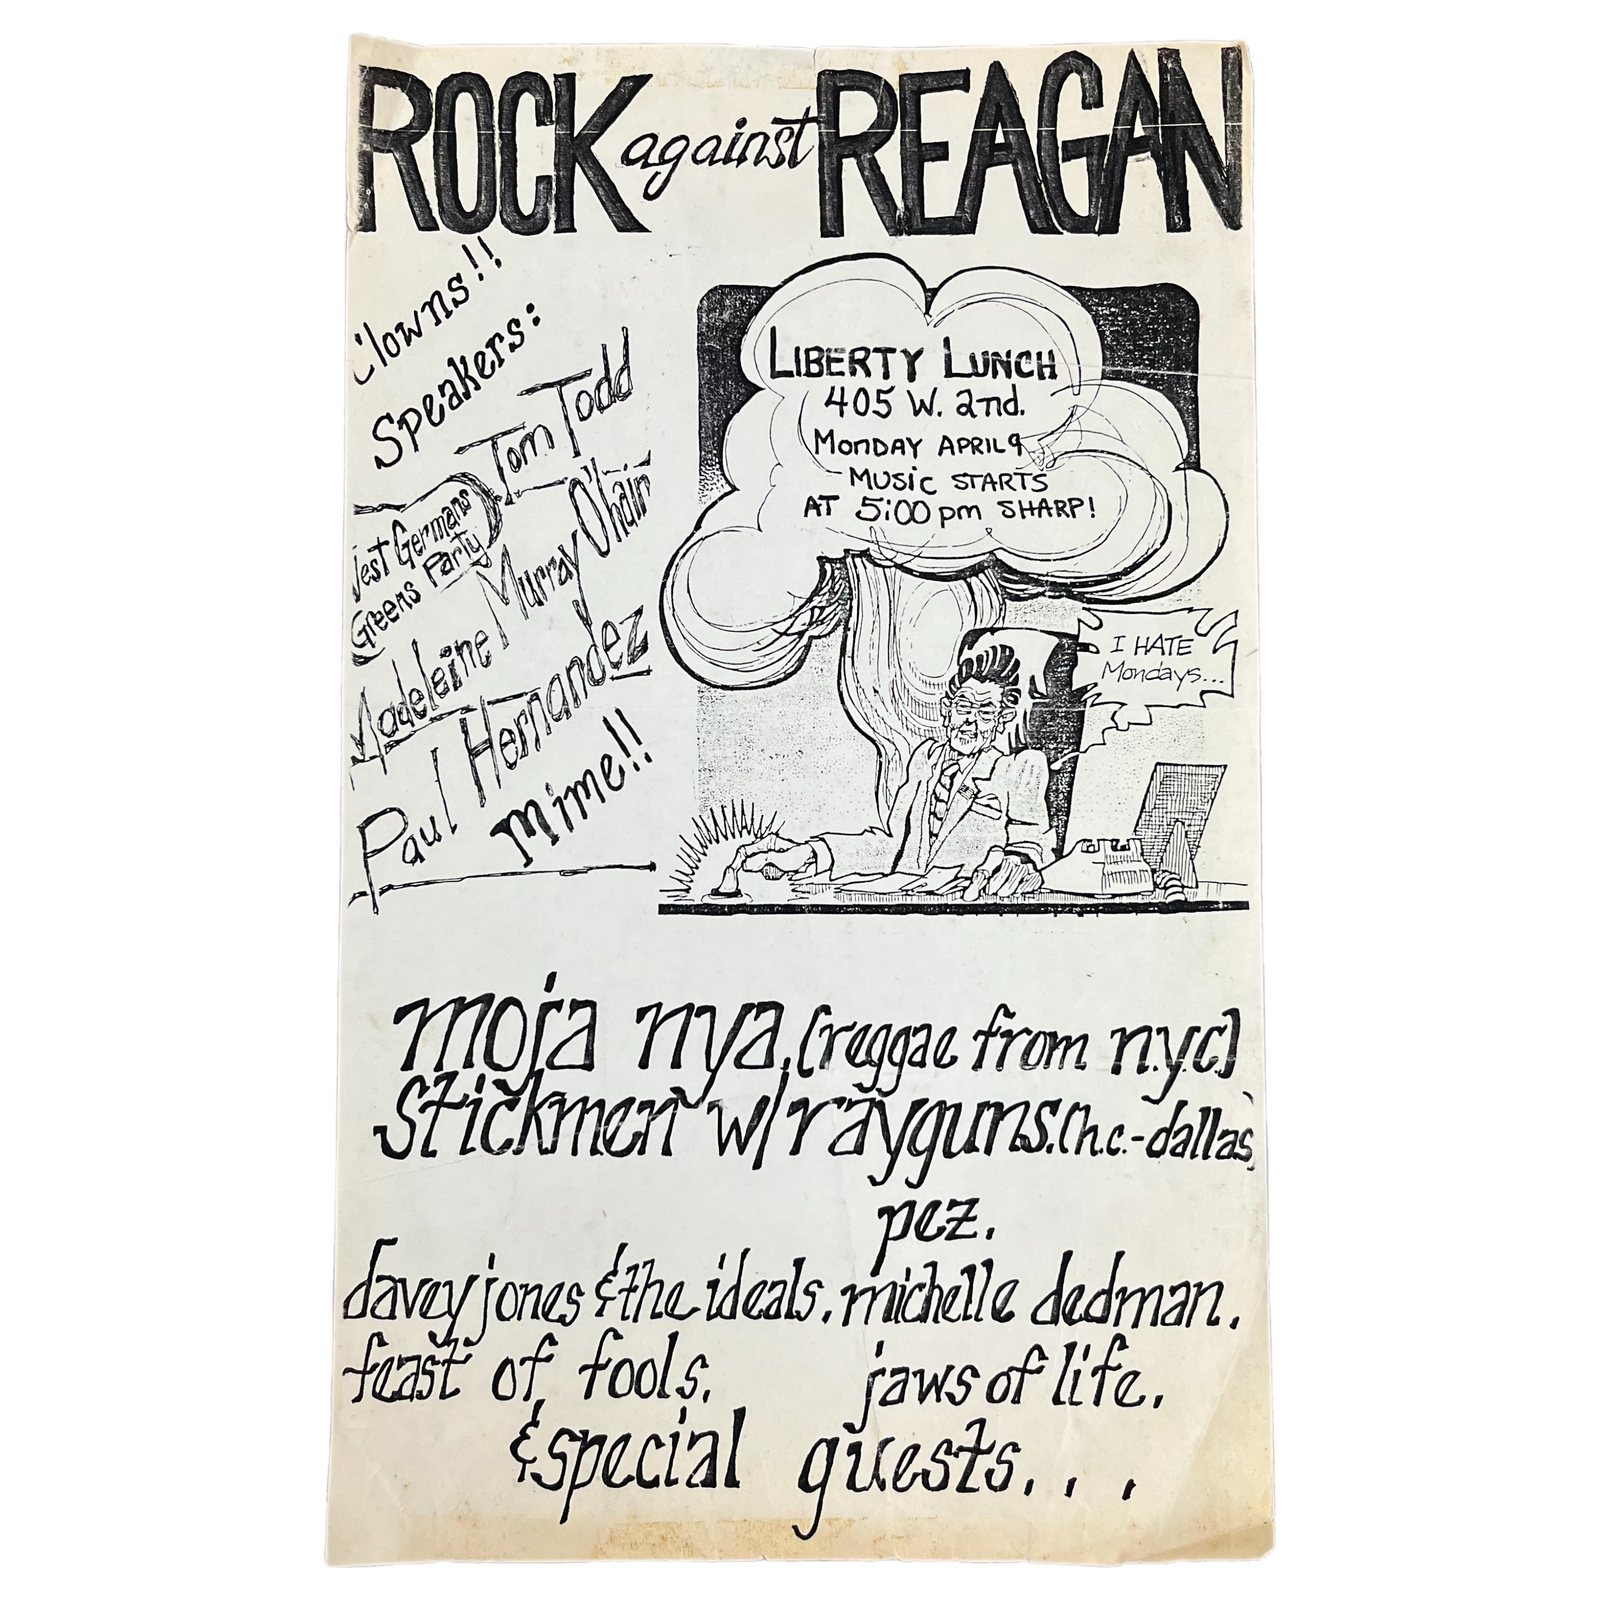 ROCK against REAGAN
Clowns!!
Speakers:
Tom Todd
West Germans
Greens Party
Madeleine Murray O'hair
Paul Hernandez
mime!!
LIBERTY LUNCH
405 W. 2nd.
MONDAY APRIL 9
MUSIC STARTS
AT 5:00 pm SHARP!
I HATE
Mondays...
moja nya. (reggae from n.y.c.)
stickmen w/ rayguns. (h.c.-dallas)
pez.
davey jones & the ideals. michelle dedman.
feast of fools. jaws of life.
& special guests...